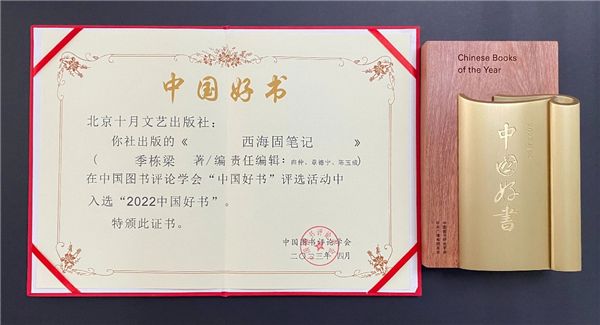 中国好书
北京十月文艺出版社：
你社出版的《 西海固笔记 》
（ 季栋梁 著/编 责任编辑： 章德宁、陈玉成）
在中国图书评论学会“中国好书”评选活动中
入选“2022中国好书”。
特颁此证书。
中国图书评论学会
二〇二三年 四月
Chinese Books
of the Year
中国好書
中国图书评论学会